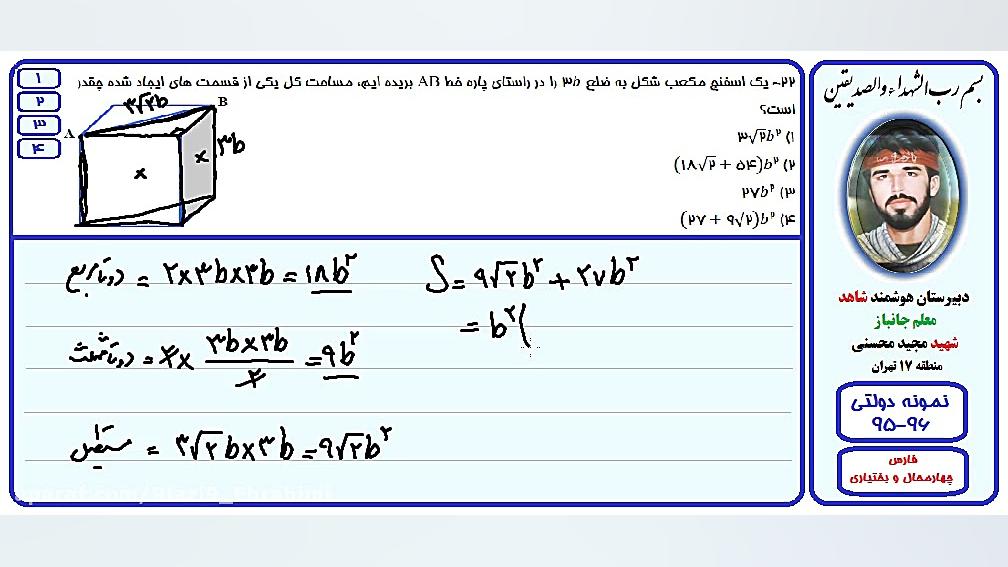 ۲۲- یک اسفنج مکعب شکل به ضلع ۳b را در راستای پاره خط AB بریده ایم، مساحت کل یکی از قسمت های ایجاد شده چقدر
است؟
۱) ۳√۲b²
۲) (۱۸√۲ + ۵۴)b²
۳) ۲۷b²
۴) (۲۷ + ۹√۲)b²
۱
۲
۳
۴
A
B
۳√۲b
۳b
x
x
دو تا مربع = ۲×۳b×۳b = ۱۸b²
دو تا مثلث = ۲× ۳b×۳b/۲ = ۹b²
مستطیل = ۳√۲b×۳b = ۹√۲b²
S = ۹√۲b² + ۲۷b²
= b²(
بسم رب الشهداء والصدیقین
دبیرستان هوشمند شاهد
معلم جانباز
شهید مجید محسنی
منطقه ۱۷ تهران
نمونه دولتی
۹۵-۹۶
فارس
چهارمحال و بختیاری